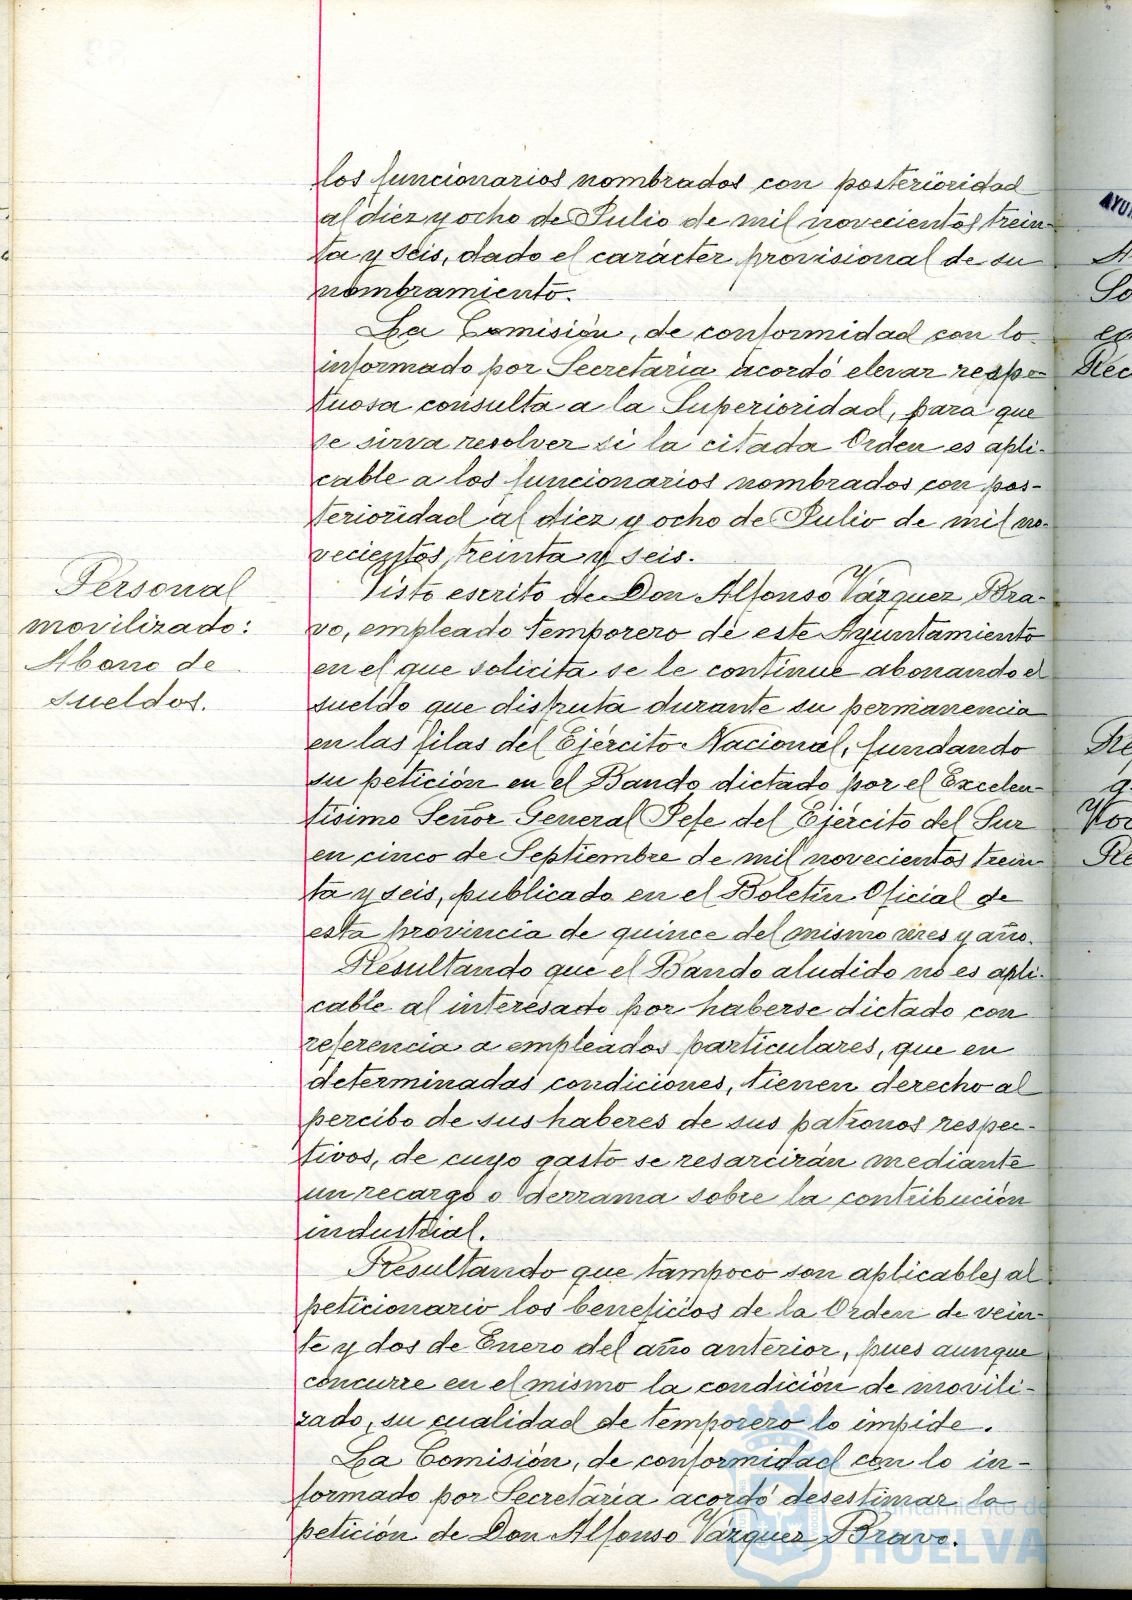 los funcionarios nombrados con posterioridad
al diez y ocho de Julio de mil novecientos trein-
ta y seis, dado el carácter provisional de su
nombramiento.
La Comisión, de conformidad con lo
informado por Secretaria acordó elevar respe-
tuosa consulta a la Superioridad, para que
se sirva resolver si la citada Orden es apli-
cable a los funcionarios nombrados con pos-
terioridad al diez y ocho de Julio de mil no-
vecientos, treinta y seis.
Personal
movilizado:
Abono de
sueldos.
Visto escrito de Don Alfonso Vázquez Bra-
vo, empleado temporero de este Ayuntamiento
en el que solicita se le continue abonando el
sueldo que disfruta durante su permanencia
en las filas del Ejército Nacional, fundando
su petición en el Bando dictado por el Excelen-
tísimo Señor General Jefe del Ejército del Sur
en cinco de Septiembre de mil novecientos trein-
ta y seis, publicado en el Boletín Oficial de
esta provincia de quince del mismo mes y año.
Resultando que el Bando aludido no es apli-
cable al interesado por haberse dictado con
referencia a empleados particulares, que en
determinadas condiciones, tienen derecho al
percibo de sus haberes de sus patronos respec-
tivos, de cuyo gasto se resarcirán mediante
un recargo o derrama sobre la contribución
industrial.
Resultando que tampoco son aplicables al
peticionario los beneficios de la Orden de vein-
te y dos de Enero del año anterior, pues aunque
concurre en el mismo la condición de movili-
zado, su cualidad de temporero lo impide.
La Comisión, de conformidad con lo in-
formado por Secretaria acordó desestimar la
petición de Don Alfonso Vázquez Bravo.
Ayuntamiento de
HUELVA